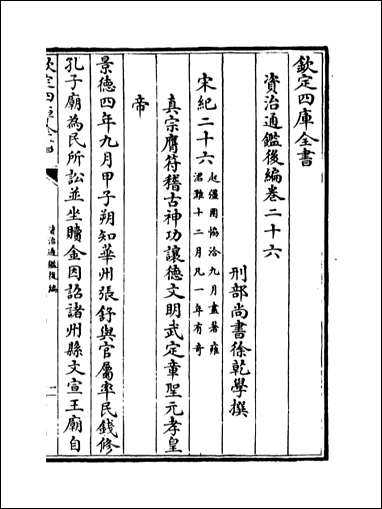 欽定四庫全書
資治通鑑後編卷二十六
刑部尚書徐乾學撰
宋紀二十六
起彊圉協洽九月盡著雍
涒灘十二月凡一年有奇
真宗膺符稽古神功讓德文明武定章聖元孝皇
帝
景德四年九月甲子朔知華州張舒與官屬率民錢修
孔子廟為民所訟並坐贖金因詔諸州縣文宣王廟自
資治通鑑後編